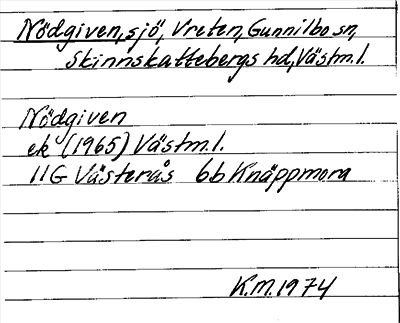 Nödgiven, sjö, Vreten, Gunnilbo sn,
Skinnskattebergs hd, Västm.l.
Nödgiven
ek (1965) Västm.l.
11G Västerås 6b Knäppmora
K.M. 1974